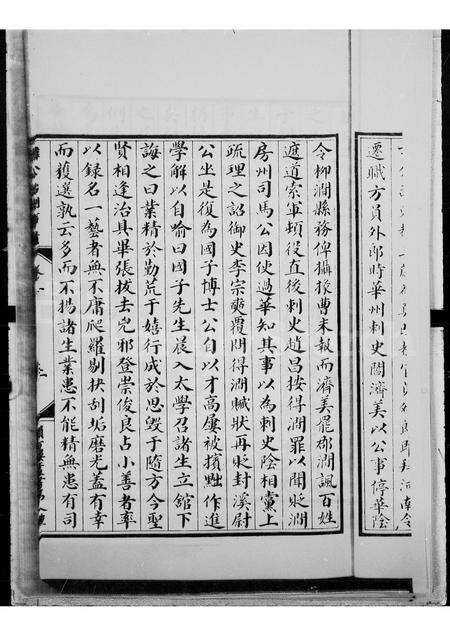 遷職方員外郎時華州刺史閻濟美以公事停華陰
令柳澗縣務俾攝掾曹未報而濟美罷郡澗諷百姓
遮道索軍頓役直後刺史趙昌按得澗罪以聞貶澗
房州司馬公因使過華知其事以為刺史陰相黨上
疏理之詔御史李宗奭覆問得澗贓狀再貶封溪尉
公坐是復為國子博士公自以才高屢被擯黜作進
學解以自喻曰國子先生晨入太學召諸生立舘下
誨之曰業精於勤荒于嬉行成於思毀于隨方今聖
賢相逢治具畢張拔去兇邪登崇俊良占小善者率
以録名一藝者無不庸爬羅剔抉刮垢磨光蓋有幸
而獲選孰云多而不揚諸生業患不能精無患有司